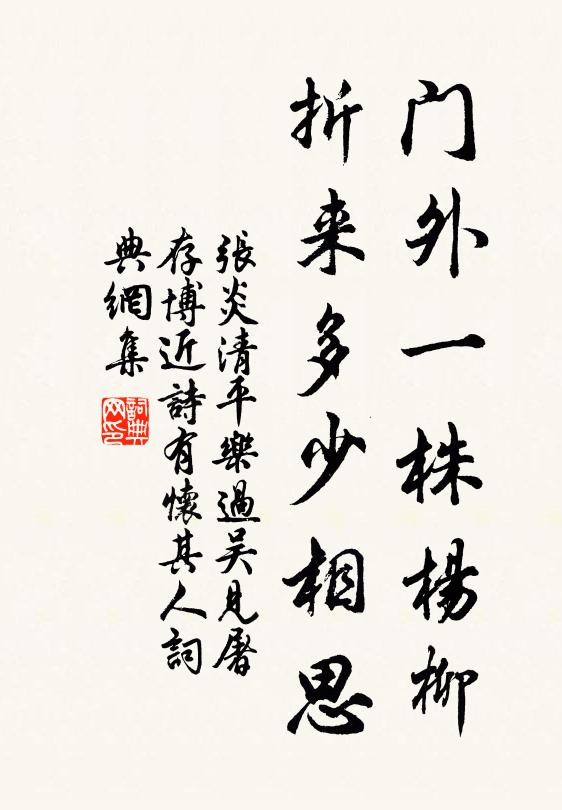 门外一株楊柳
折来多少相思
張炎清平樂過吴見屠
存博近詩有懷其人詞
典網集
詞典
网印